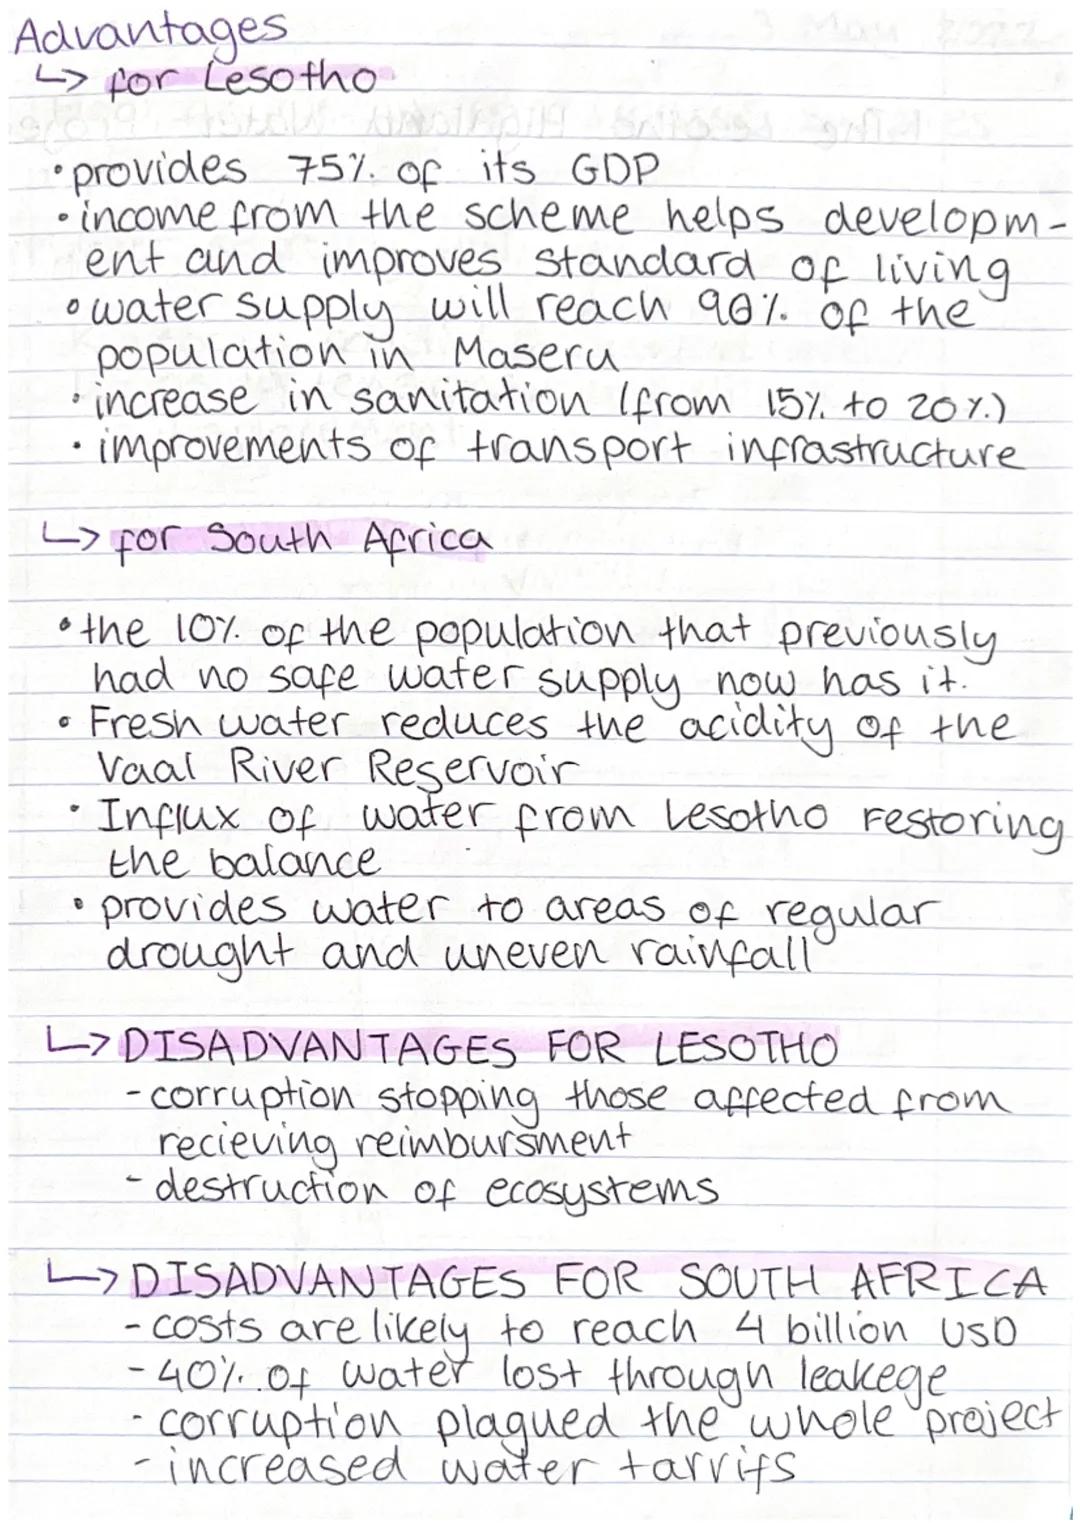 Advantages
↳ for Lesotho
• provides 75% of its GDP
• income from the scheme helps developm-
ent and improves standard of living
• water supply will reach 90% of the
population in Maseru
• increase in sanitation (from 15% to 20%)
• improvements of transport infrastructure
↳ for South Africa
• the 10% of the population that previously
had no safe water supply now has it.
• Fresh water reduces the acidity of the
Vaal River Reservoir
• Influx of water from Lesotho restoring
the balance
• provides water to areas of regular
drought and uneven rainfall
↳ DISADVANTAGES FOR LESOTHO
- corruption stopping those affected from
recieving reimbursment
- destruction of ecosystems
↳ DISADVANTAGES FOR SOUTH AFRICA
- costs are likely to reach 4 billion USD
- 40% of water lost through leakege
- corruption plagued the whole project
- increased water tarrifs